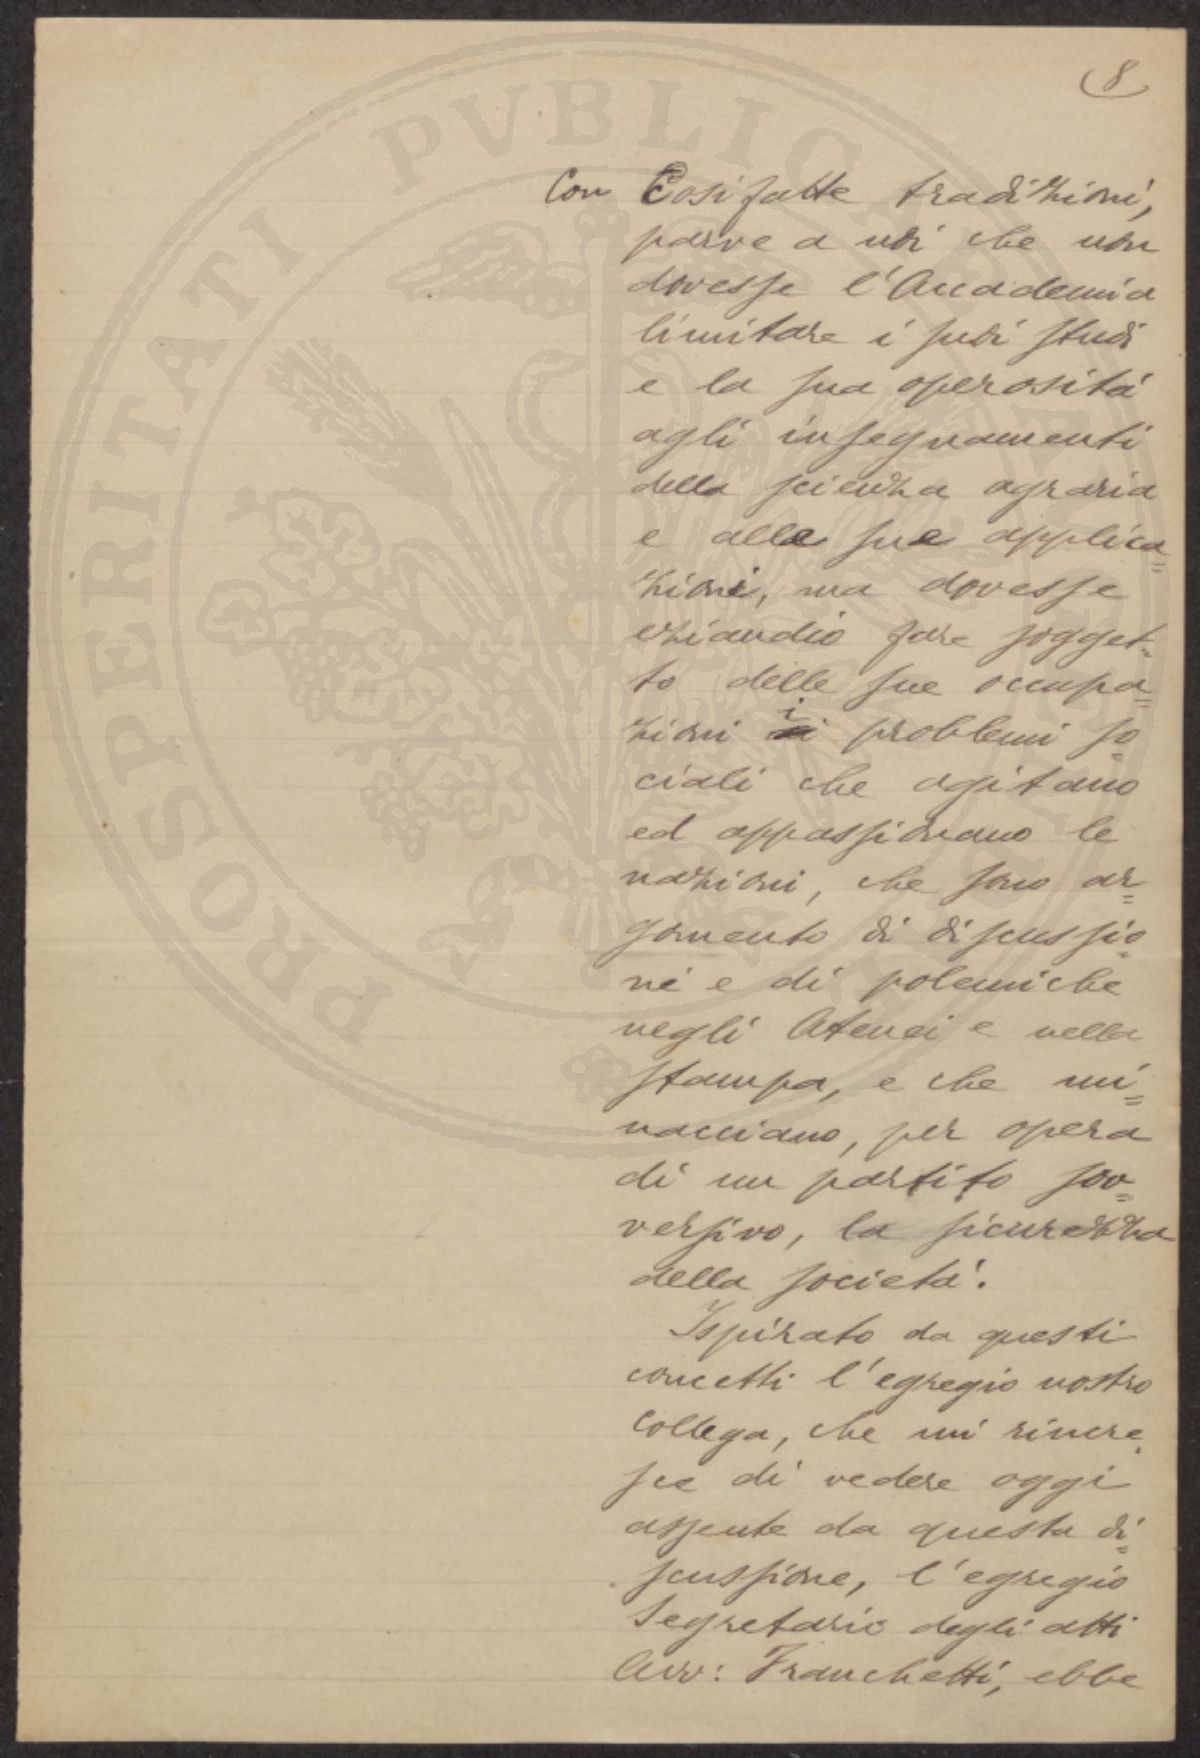 8
Con Cosifatte tradizioni,
parve a noi che non
dovesse l'Accademia
limitare i suoi studi
e la sua operosità
agli insegnamenti
della scienza agraria
e alle sue applica=
zioni, ma dovesse
eziandio fare sogget=
to delle sue occupa=
zioni i problemi so=
ciali che agitano
ed appassionano le
nazioni, che sono ar=
gomento di discussio=
ni e di polemiche
negli Atenei e nella
stampa, e che mi=
nacciano, per opera
di un partito sov=
versivo, la sicurezza
della società.
Ispirato da questi
concetti l'egregio nostro
Collega, che mi rincre=
sce di vedere oggi
assente da questa di=
scussione, l'egregio
Segretario degli atti
Avv: Franchetti, ebbe
PROSPERITATI PVBLICAE